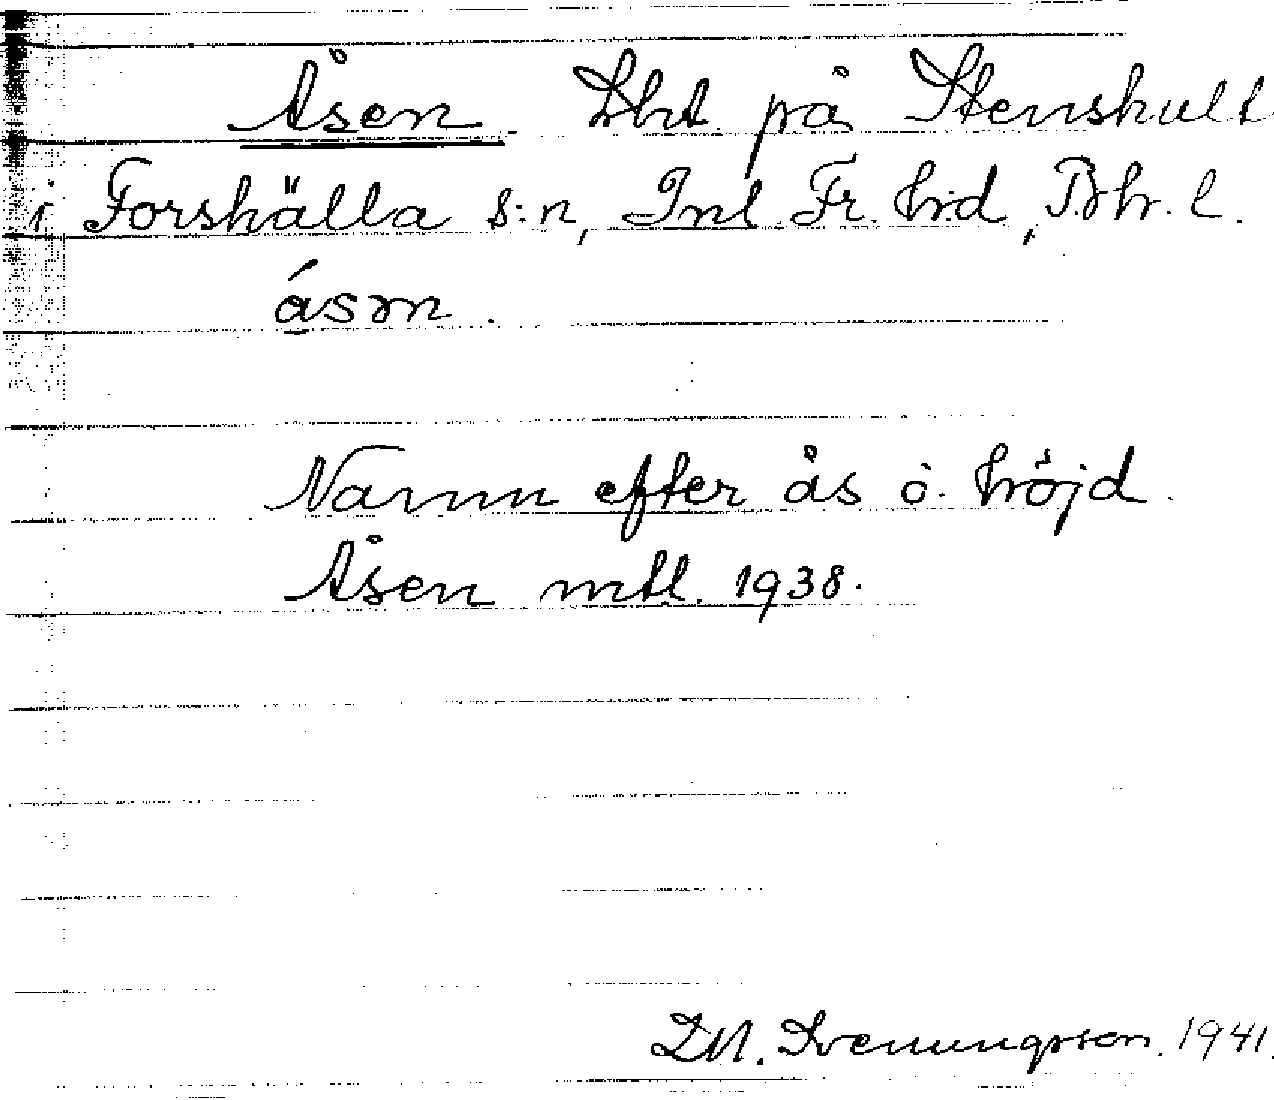 Åsen Lht på Stenshult
i Forshälla s:n, Inl. Fr. hd, Bhr. l.
åsm.
Namn efter ås o. höjd.
Åsen mtl. 1938.
Svenungsson. 1941.